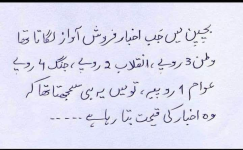 بچپن میں جب اخبار فروش آواز لگاتا تھا
وطن 3 روپے، انقلاب 2 روپے، جنگ 4 روپے
عوام 1 روپیہ، تو میں یہی سمجھتا تھا کہ
وہ اخبار کی قیمت بتا رہا ہے ۔۔۔۔۔